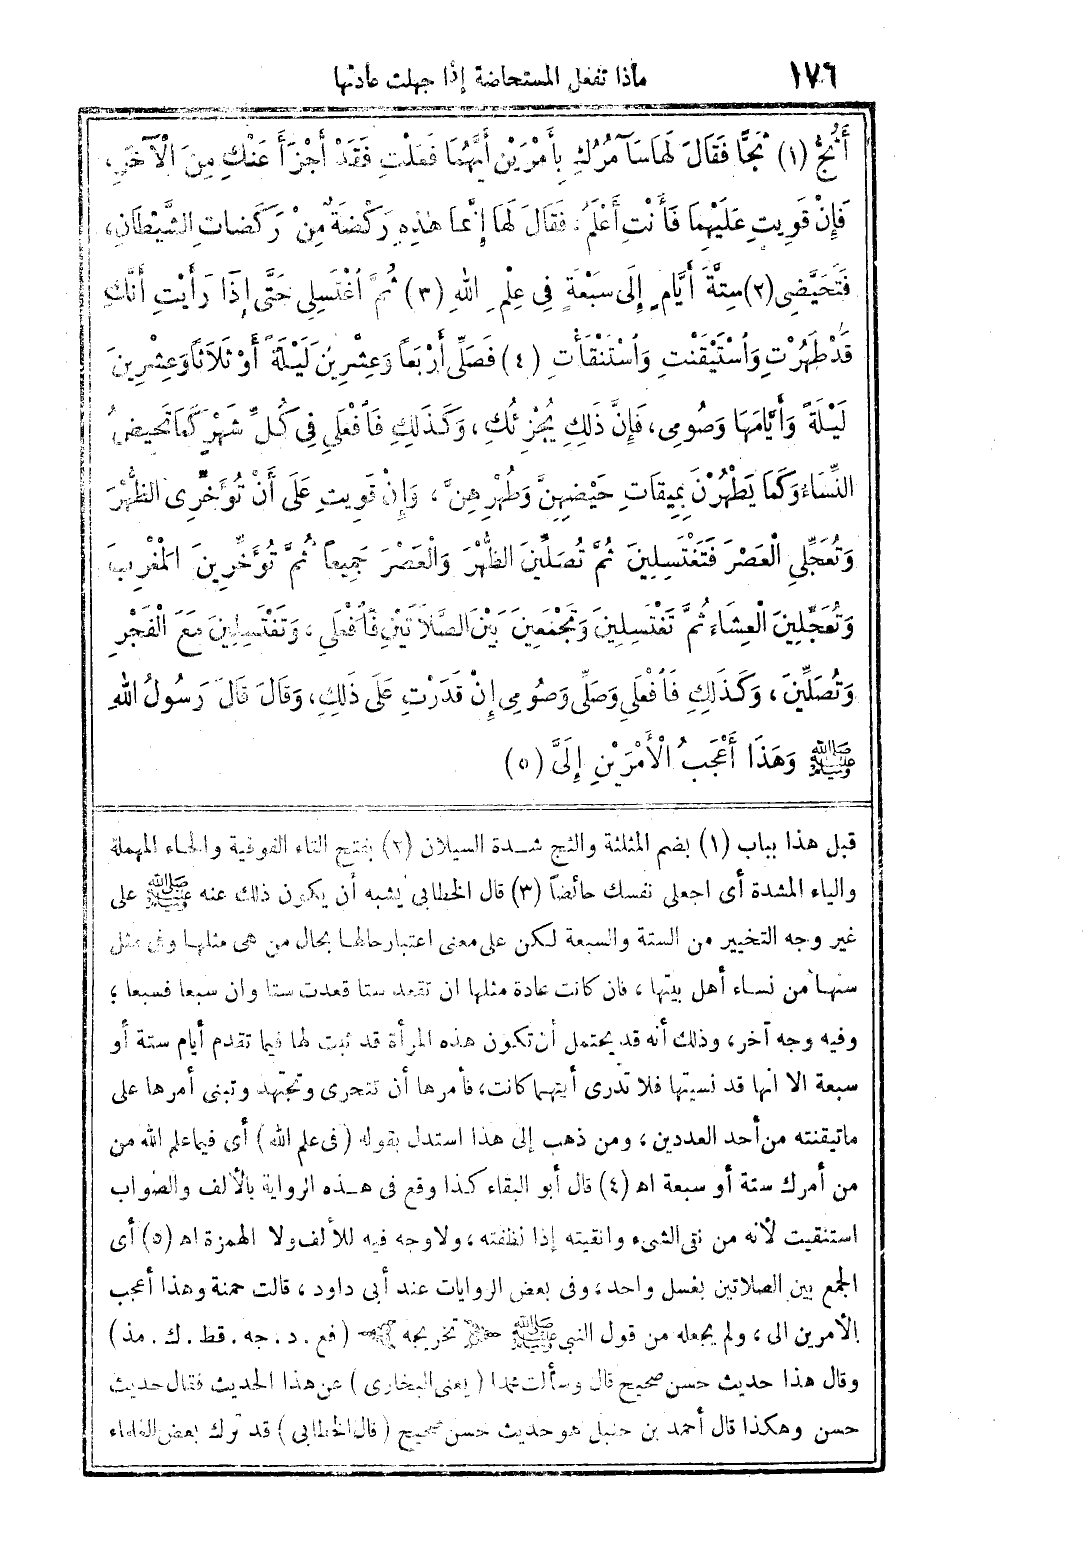 ١٧٦ ماذا تفعل المستحاضة إذا جهلت عادتها
أَثُجُّ (١) ثَجًّا فَقَالَ لَهَا سَآمُرُكِ بِأَمْرَيْنِ أَيَّهُمَا فَعَلْتِ فَقَدْ أَجْزَأَ عَنْكِ مِنَ الْآخَرِ،
فَإِنْ قَوِيتِ عَلَيْهِمَا فَأَنْتِ أَعْلَمُ، فَقَالَ لَهَا إِنَّمَا هٰذِهِ رَكْضَةٌ مِنْ رَكَضَاتِ الشَّيْطَانِ،
فَتَحَيَّضِى (٢) سِتَّةَ أَيَّامٍ إِلَى سَبْعَةٍ فِى عِلْمِ اللهِ (٣) ثُمَّ اغْتَسِلِى حَتَّى إِذَا رَأَيْتِ أَنَّكِ
قَدْ طَهُرْتِ وَاسْتَيْقَنْتِ وَاسْتَنْقَأْتِ (٤) فَصَلِّى أَرْبَعاً وَعِشْرِينَ لَيْلَةً أَوْ ثَلَاثاً وَعِشْرِينَ
لَيْلَةً وَأَيَّامَهَا وَصُومِى، فَإِنَّ ذَلِكِ يُجْزِئُكِ، وَكَذَلِكِ فَافْعَلِى فِى كُلِّ شَهْرٍ كَمَا تَحِيضُ
النِّسَاءُ وَكَمَا يَطْهُرْنَ بِمِيقَاتِ حَيْضِهِنَّ وَطُهْرِهِنَّ، وَإِنْ قَوِيتِ عَلَى أَنْ تُؤَخِّرِى الظُّهْرَ
وَتُعَجِّلِى الْعَصْرَ فَتَغْتَسِلِينَ ثُمَّ تُصَلِّينَ الظُّهْرَ وَالْعَصْرَ جَمِيعاً ثُمَّ تُؤَخِّرِينَ الْمَغْرِبَ
وَتُعَجِّلِينَ الْعِشَاءَ ثُمَّ تَغْتَسِلِينَ وَتَجْمَعِينَ بَيْنَ الصَّلَاتَيْنِ فَافْعَلِى، وَتَغْتَسِلِينَ مَعَ الْفَجْرِ
وَتُصَلِّينَ، وَكَذَلِكِ فَافْعَلِى وَصَلِّى وَصُومِى إِنْ قَدَرْتِ عَلَى ذَلِكِ، وَقَالَ قَالَ رَسُولُ اللهِ
ﷺ وَهَذَا أَعْجَبُ الْأَمْرَيْنِ إِلَىَّ (٥)
قبل هذا بباب (١) بضم المثلثة والثج شدة السيلان (٢) بفتح التاء الفوقية والحاء المهملة
والياء المشدة أى اجعلى نفسك حائضاً (٣) قال الخطابى يشبه أن يكون ذلك عنه ﷺ على
غير وجه التخيير من الستة والسبعة لكن على معنى اعتبار حالها بحال من هى مثلها وفى مثل
سنها من نساء أهل بيتها، فان كانت عادة مثلها ان تقعد ستا قعدت ستا وان سبعا فسبعا؛
وفيه وجه آخر، وذلك أنه قد يحتمل أن تكون هذه المرأة قد ثبت لها فيما تقدم أيام ستة أو
سبعة الا انها قد نسيتها فلا تدرى أيتهما كانت، فأمرها أن تتحرى وتجتهد وتبنى أمرها على
ماتيقنته من أحد العددين، ومن ذهب إلى هذا استدل بقوله (فى علم الله) أى فيما علم الله من
من أمرك ستة أو سبعة اه (٤) قال أبو البقاء كذا وقع فى هذه الرواية بالألف والصواب
استنقيت لأنه من نقى الشىء وانقيته إذا نظفته، ولا وجه فيه للألف ولا الهمزة اه (٥) أى
الجمع بين الصلاتين بغسل واحد، وفى بعض الروايات عند أبى داود، قالت حمنة وهذا أعجب
الأمرين الى، ولم يجعله من قول النبى ﷺ تخريجه (فع . د . جه . قط . ك . مذ)
وقال هذا حديث حسن صحيح قال وسألت محمدا (يعنى البخارى) عن هذا الحديث فقال حديث
حسن وهكذا قال أحمد بن حنبل هو حديث حسن صحيح (قال الخطابى) قد ترك بعض العلماء